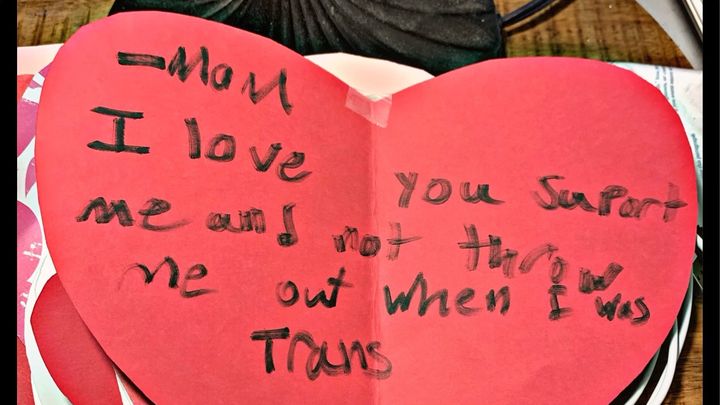 -Mom
I love you suport
me and not throw
me out when I was
Trans